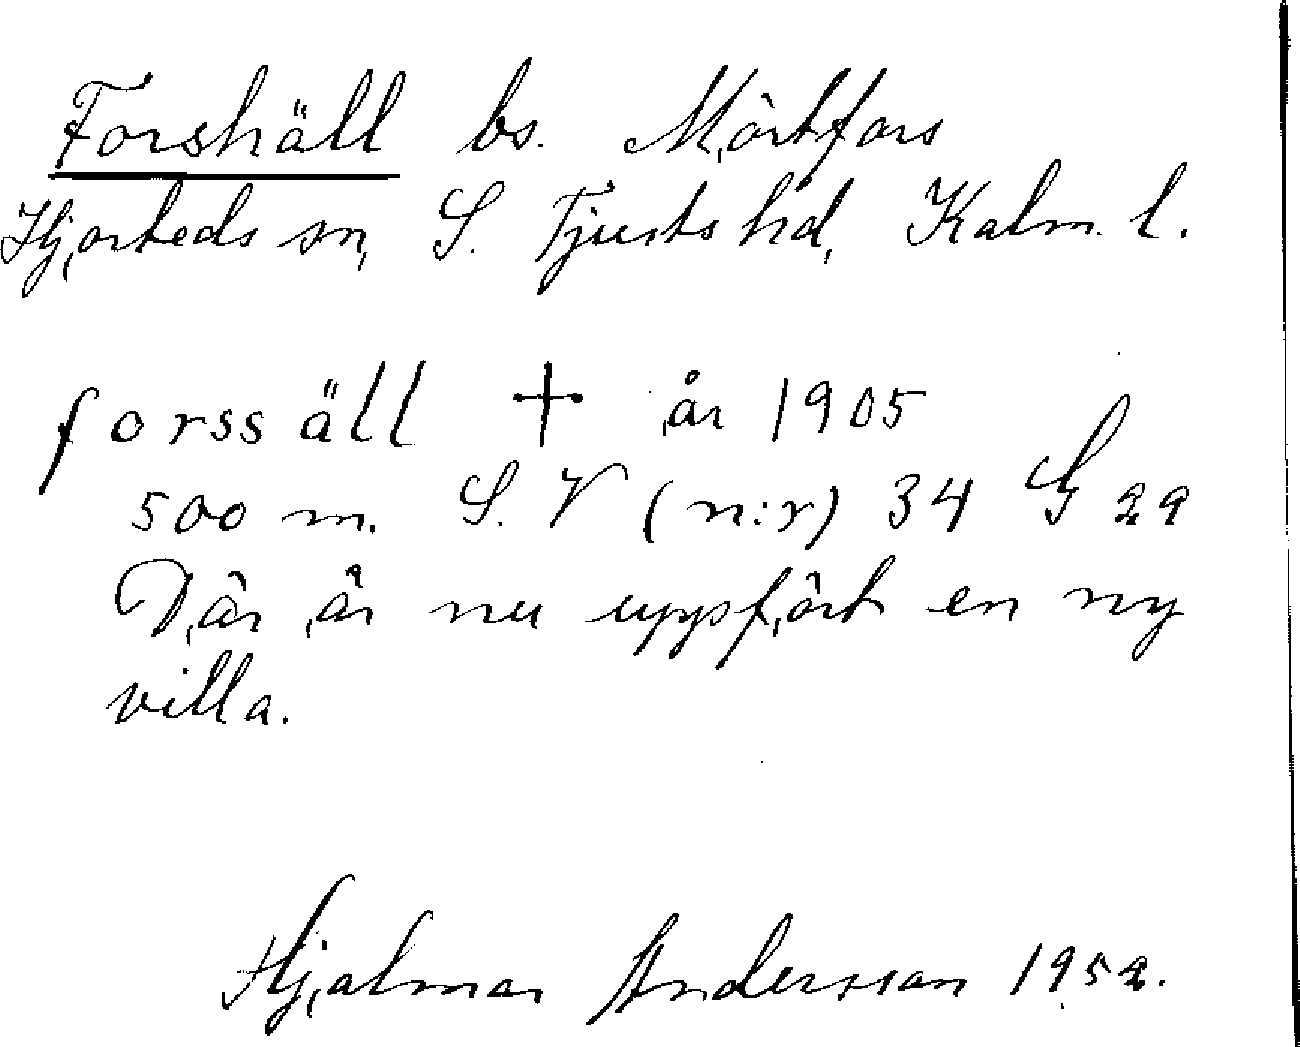 Forshäll bs. Mörtfors
Hjorteds sn, S. Tjusts hd, Kalm. l.
forssäll + år 1905
500 m. S. V (n:r) 34 G 29
Där är nu uppfört en ny
villa.
Hjalmar Andersson 1952.